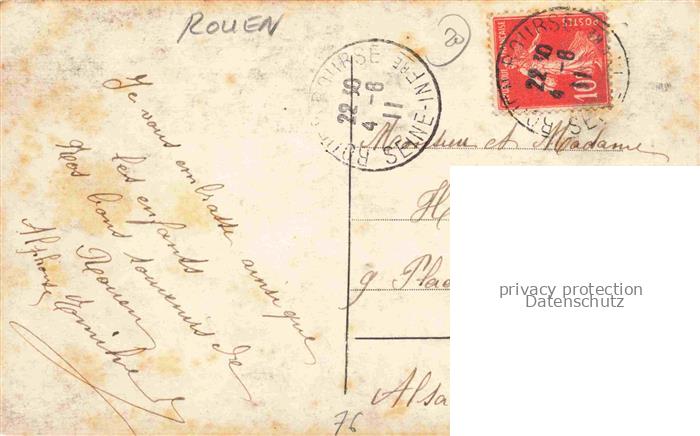 ROUEN
20
ROUEN BOURSE
22 30
4 - 8
11
SEINE-INFRE
POSTES
10
Je vous embrasse ainsi que
les enfants
Nos bons souvenirs de
Rouen
Alphonse Emilie
Monsieur et Madame
H
9 Plac
Alsa
76
privacy protection
Datenschutz